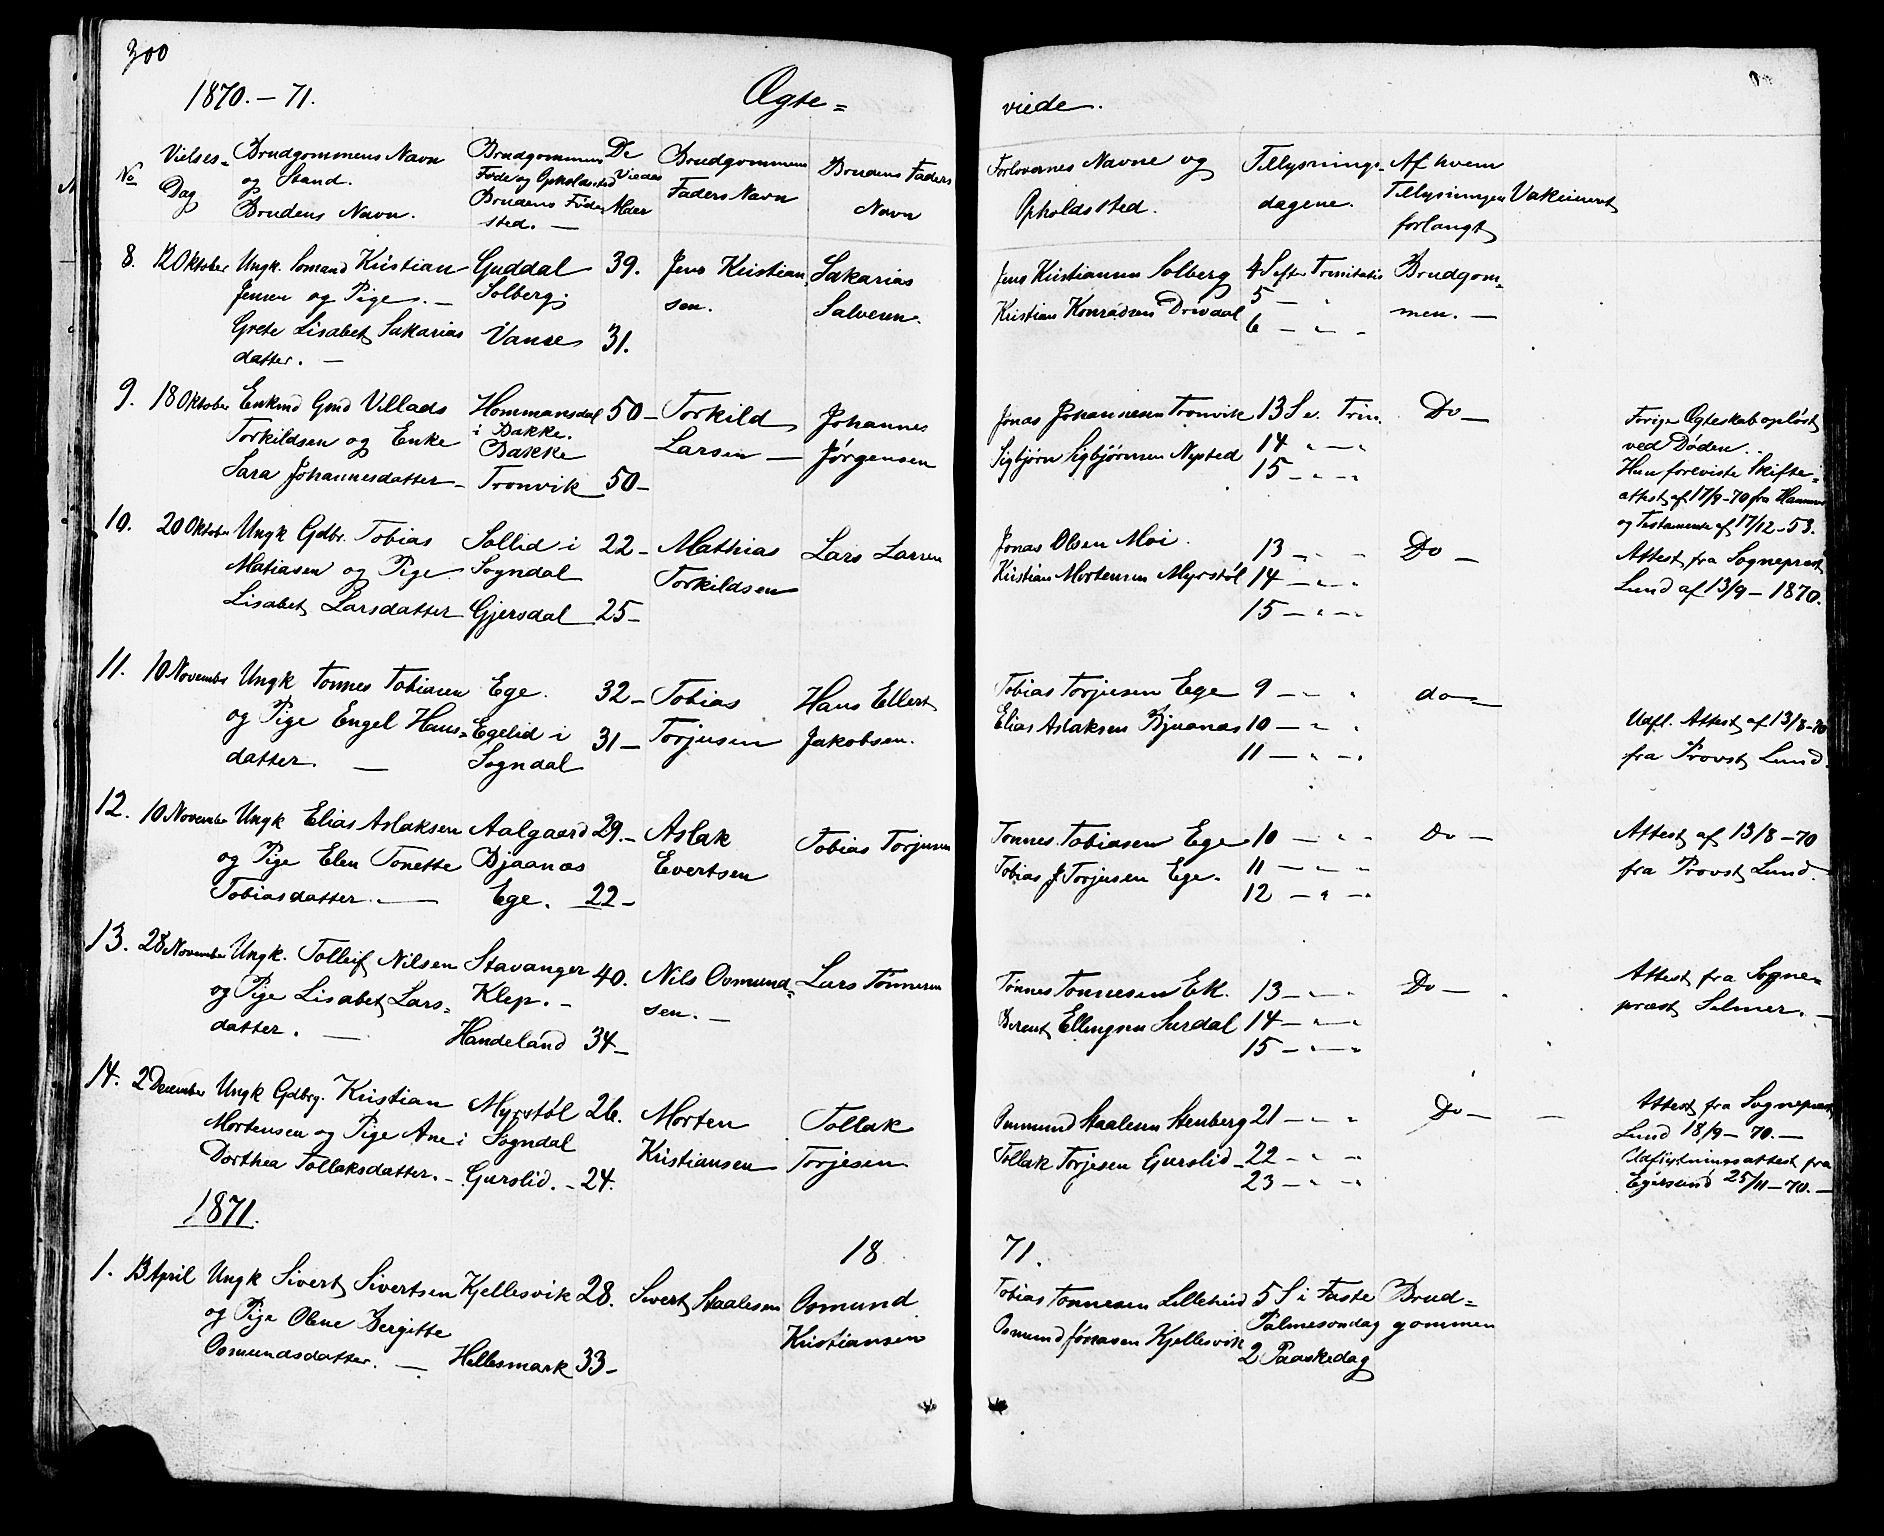 300
1870.-71.
Ægte=
viede.
No
Vielses-
Dag
Brudgommens Navn
og Stand.
Brudens Navn.
Brudgommens
Føde og Opholdssted
Brudens Føde
sted. —
De
Viedes
Alder
Brudgommens
Faders Navn
Brudens Faders
Navn
Forlovernes Navne og
Opholdssted.
Tillysnings-
dagene.
Af hvem
Tillysningen
forlangt
Vakcineret
8. 12 Oktober Ungk. Kristian
Jensen og Pige. —
Grete Lisabet Sakarias
datter. —
Guddal
Solberg.
Vanse
39.
31.
Jens Kristian
sen.
Sakarias
Salvesen.
Jens Kristiansen Solberg
Kristian Konradsen Drivdal
4 S efter Trinitatis
5 — "
6 — " —
Brudgom-
men. —
9. 18 Oktober Enkmd Gmd Villads
Torkildsen og Enke
Sara Johannesdatter —
Hommansdal
i Bakke.
Bakke
Tronvik
50 —
50 —
Torkild
Larsen —
Johannes
Jørgensen
Jonas Johannesen Tronvik
Sigbjørn Sigbjørnsen Nysted
13 S e. Trin.
14 " — "
15 — " — "
Do —
Forige Ægteskab opløst
ved Døden. . .
Hun foreviste Skifte-
attest af 17/9-70 fra
og Testamente af 17/12-53.
10. 20 Oktober Ungk Gdbr. Tobias
Matiasen og Pige
Lisabet Larsdatter
Sollid i
Sogndal
Gjersdal
22 —
25 —
Mathias
Torkildsen
Lars Larsen
Jonas Olsen Moi.
Kristian Mortensen Myrstøl
13 — " —
14 — " — "
15 — " — "
Do —
Attest fra Sogneprest
Lund af 13/9 — 1870.
11. 10 November Ungk Tonnes Tobiasen
og Pige Engel Hans-
datter. —
Ege.
Egelid i
Sogndal
32 —
31 —
Tobias
Torjusen
Hans Ellert
Jakobsen.
Tobias Torjusen Ege
Elias Aslaksen Bjuanæs
9 — " "
10 — " "
11 — " — "
do —
Udfl. Attest af 13/8-70
fra Provst Lund.
12. 10 November Ungk Elias Aslaksen
og Pige Elen Tonette
Tobiasdatter. —
Aalgaard
Bjaanæs
Ege.
29. —
22 —
Aslak
Evertsen
Tobias Torjusen
Tonnes Tobiasen Ege
Tobias J Torjusen Ege.
10 — " "
11 — " — "
12 — " — "
Do —
Attest af 13/8-70
fra Provst Lund.
13. 28 November Ungk. Tolleif Nilsen
og Pige Lisabet Lars-
datter. —
Stavanger
Klep. —
Handeland
40.
34 —
Nils Osmund=
sen. —
Lars Tonnesen
Tønnes Tonnesen Ek.
Berent Ellingsen Surdal
13 — " "
14 — " — "
15 — " — "
Do —
Attest fra Sogne-
præst Selmer. —
14. 2 December Ungk Gdbrg. Kristian
Mortensen og Pige Ane
Dorthea Tollaksdatter. —
Myrstøl
i Sogndal
Gurslid. —
26.
24.
Morten
Kristiansen
Tollak
Torjesen
Osmund Staalesen Stenberg
Tollak Torjesen Gurslid
21 — " "
22 — " "
23 — " "
Do — —
Attest fra Sogneprest
Lund 18/9 — 70. —
Udflytningsattest fra
Egersund 25/11 — 70. —
1871.
18
71.
1. 13 April Ungk Sivert Sivertsen
og Pige Olene Bergitte
Osmundsdatter. —
Kjellesvik
Hellesmark
28.
33 —
Sivert Staalesen
Osmund
Kristiansen
Tobias Tonnesen Lilleheid
Osmund Jonasen Kjellesvik
5 S i Faste
Palmesondag
2 Paaskedag
Brud=
gommen